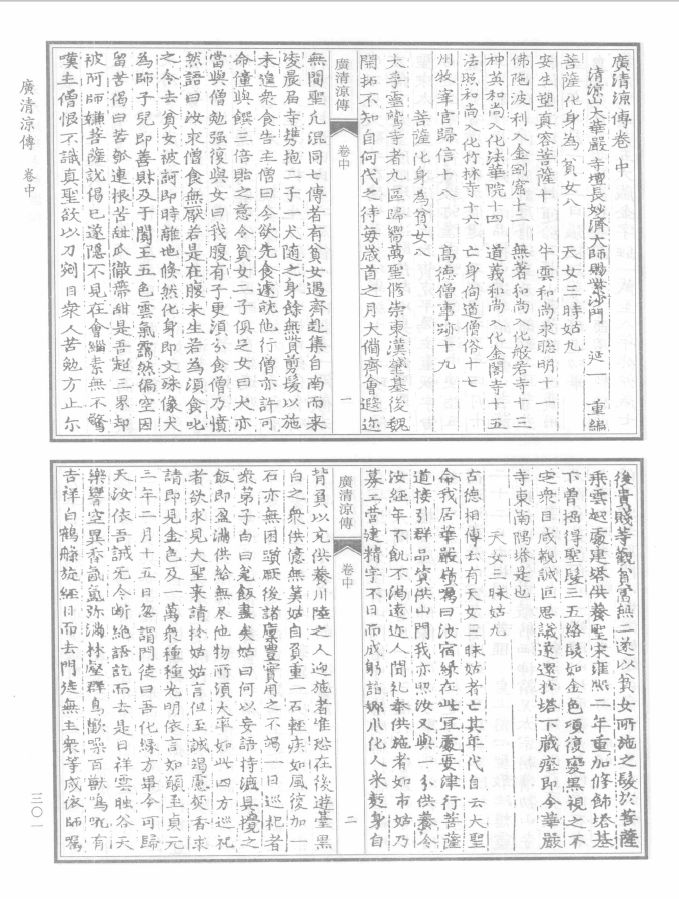 廣清涼傳卷中
清涼山大華嚴寺壇長妙濟大師賜紫沙門 延一 重編
菩薩化身為貧女八 天女三昧姑九
安生塑真容菩薩十 牛雲和尚求聰明十一
佛陁波利入金剛窟十二 無著和尚入化般若寺十三
神英和尚入化法華院十四 道義和尚入化金閣寺十五
法照和尚入化竹林寺十六 亡身徇道僧俗十七
州牧宰官歸信十八 高德僧事跡十九
菩薩化身為貧女八
大孚靈鷲寺者九區歸嚮萬聖修崇東漢肇基後魏
開拓不知自何代之時每歲首之月大備齋會遐迩
廣清涼傳 卷中 一
無間聖凡混同七傳者有貧女遇齋赴集自南而來
凌晨屆寺攜抱二子一犬隨之身餘無貲剪髮以施
未遑衆食告主僧曰今欲先食遽就他行僧亦許可
命僮與饌三倍貽之意令貧女二子俱足女曰犬亦
當與僧勉强復與女曰我腹有子更湏分食僧乃憤
然語曰汝求僧食無厭若是在腹未生若為湏食叱
之令去貧女被訶即時離地倏然化身即文殊像犬
為師子兒即善財及于闐王五色雲氣靄然徧空因
留苦偈曰苦瓠連根苦甜瓜徹蔕甜是吾超三界却
被阿師嫌菩薩說偈已遂隱不見在會緇素無不驚
嘆主僧恨不識真聖欲以刀剜目衆人苦勉方止尔
後貴賤等觀貧富無二遂以貧女所施之髮於菩薩
乘雲起處建塔供養聖宋雍熙二年重加修飾塔基
下曾掘得聖髮三五絡髮如金色頃復變黑視之不
定衆目咸覩誠叵思議遂還於塔下藏瘞即今華嚴
寺東南隅塔是也
天女三昧姑九
古德相傳云有天女三昧姑者亡其年代自云大聖
命我居華嚴嶺曰汝宿緣在此宜處要津行菩薩
道接引群品資供山門我亦照汝又與一分供養令
汝經年不飢不渴遠迩人聞礼奉供施者如市姑乃
募工營建精宇不日而成躬詣鄉川化人米麪身自
廣清涼傳 卷中 二
背負以充供養川陸之人迎施者惟恐在後遊臺黑
白之衆供億無筭姑自負重一石輕疾如風復加一
石亦無困頓厥後諸廩豐實用之不竭一日巡礼者
衆弟子白曰飯盡矣姑曰何以妄語持滿具之
飯即盈溢供給無尽他物所須大率如此四方巡礼
者欲求見大聖來請於姑姑言但至誠竭慮焚香求
請即見金色及一萬衆種種光明依言如願至貞元
三年二月十五日忽謂門徒曰吾化緣方畢今可歸
天汝依吾誡无令断絶語訖而去是日祥雲映谷天
樂響空異香氤氳弥滿林壑群鳥歡噪百獸鳴吼有
吉祥白鶴騰旋經日而去門徒無主衆等咸依師囑
廣清涼傳 卷中
三〇一